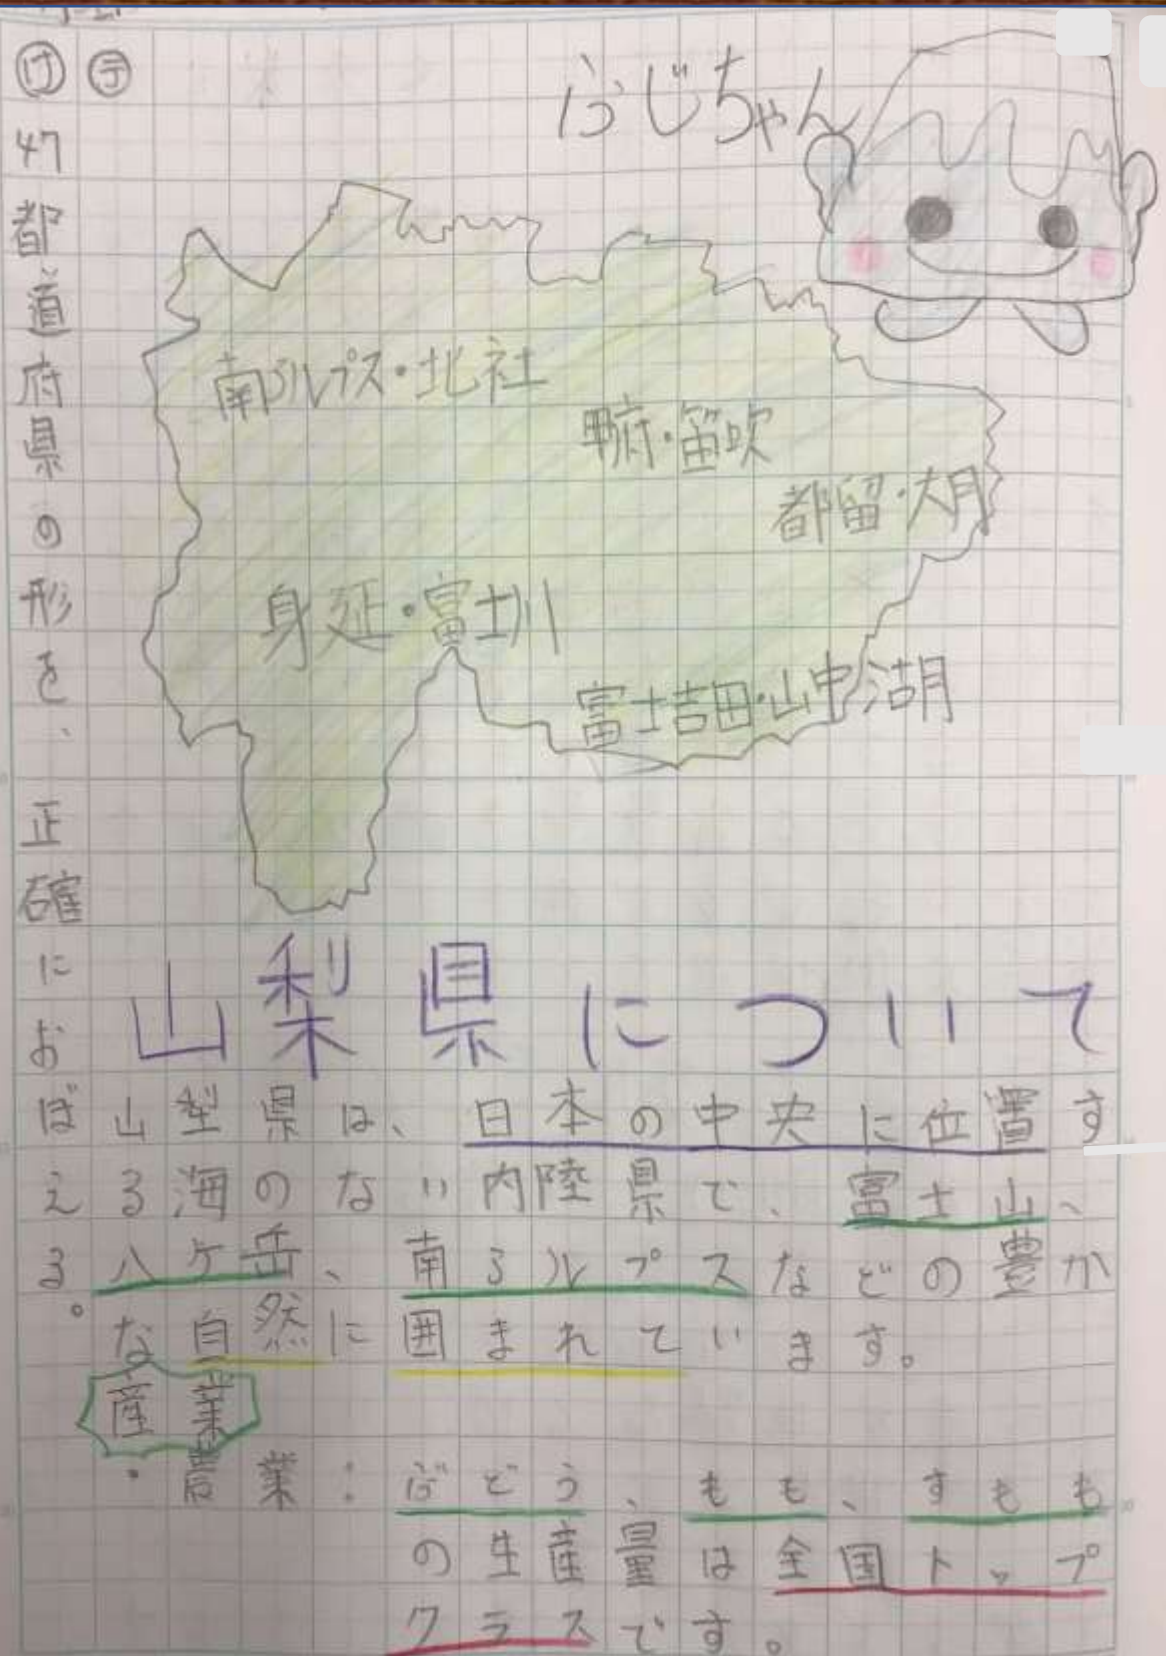 け テ
47都道府県の形を、正確におぼえる。
ふじちゃん
南アルプス・北社
甲府・笛吹
都留・大月
身延・富士川
富士吉田・山中湖
山梨県について
山型県は、日本の中央に位置す
る海のない内陸県で、富士山、
八ケ岳、南アルプスなどの豊か
な自然に囲まれています。
産業
・農業：ぶどう、もも、すもも
の生産量は全国トップ
クラスです。